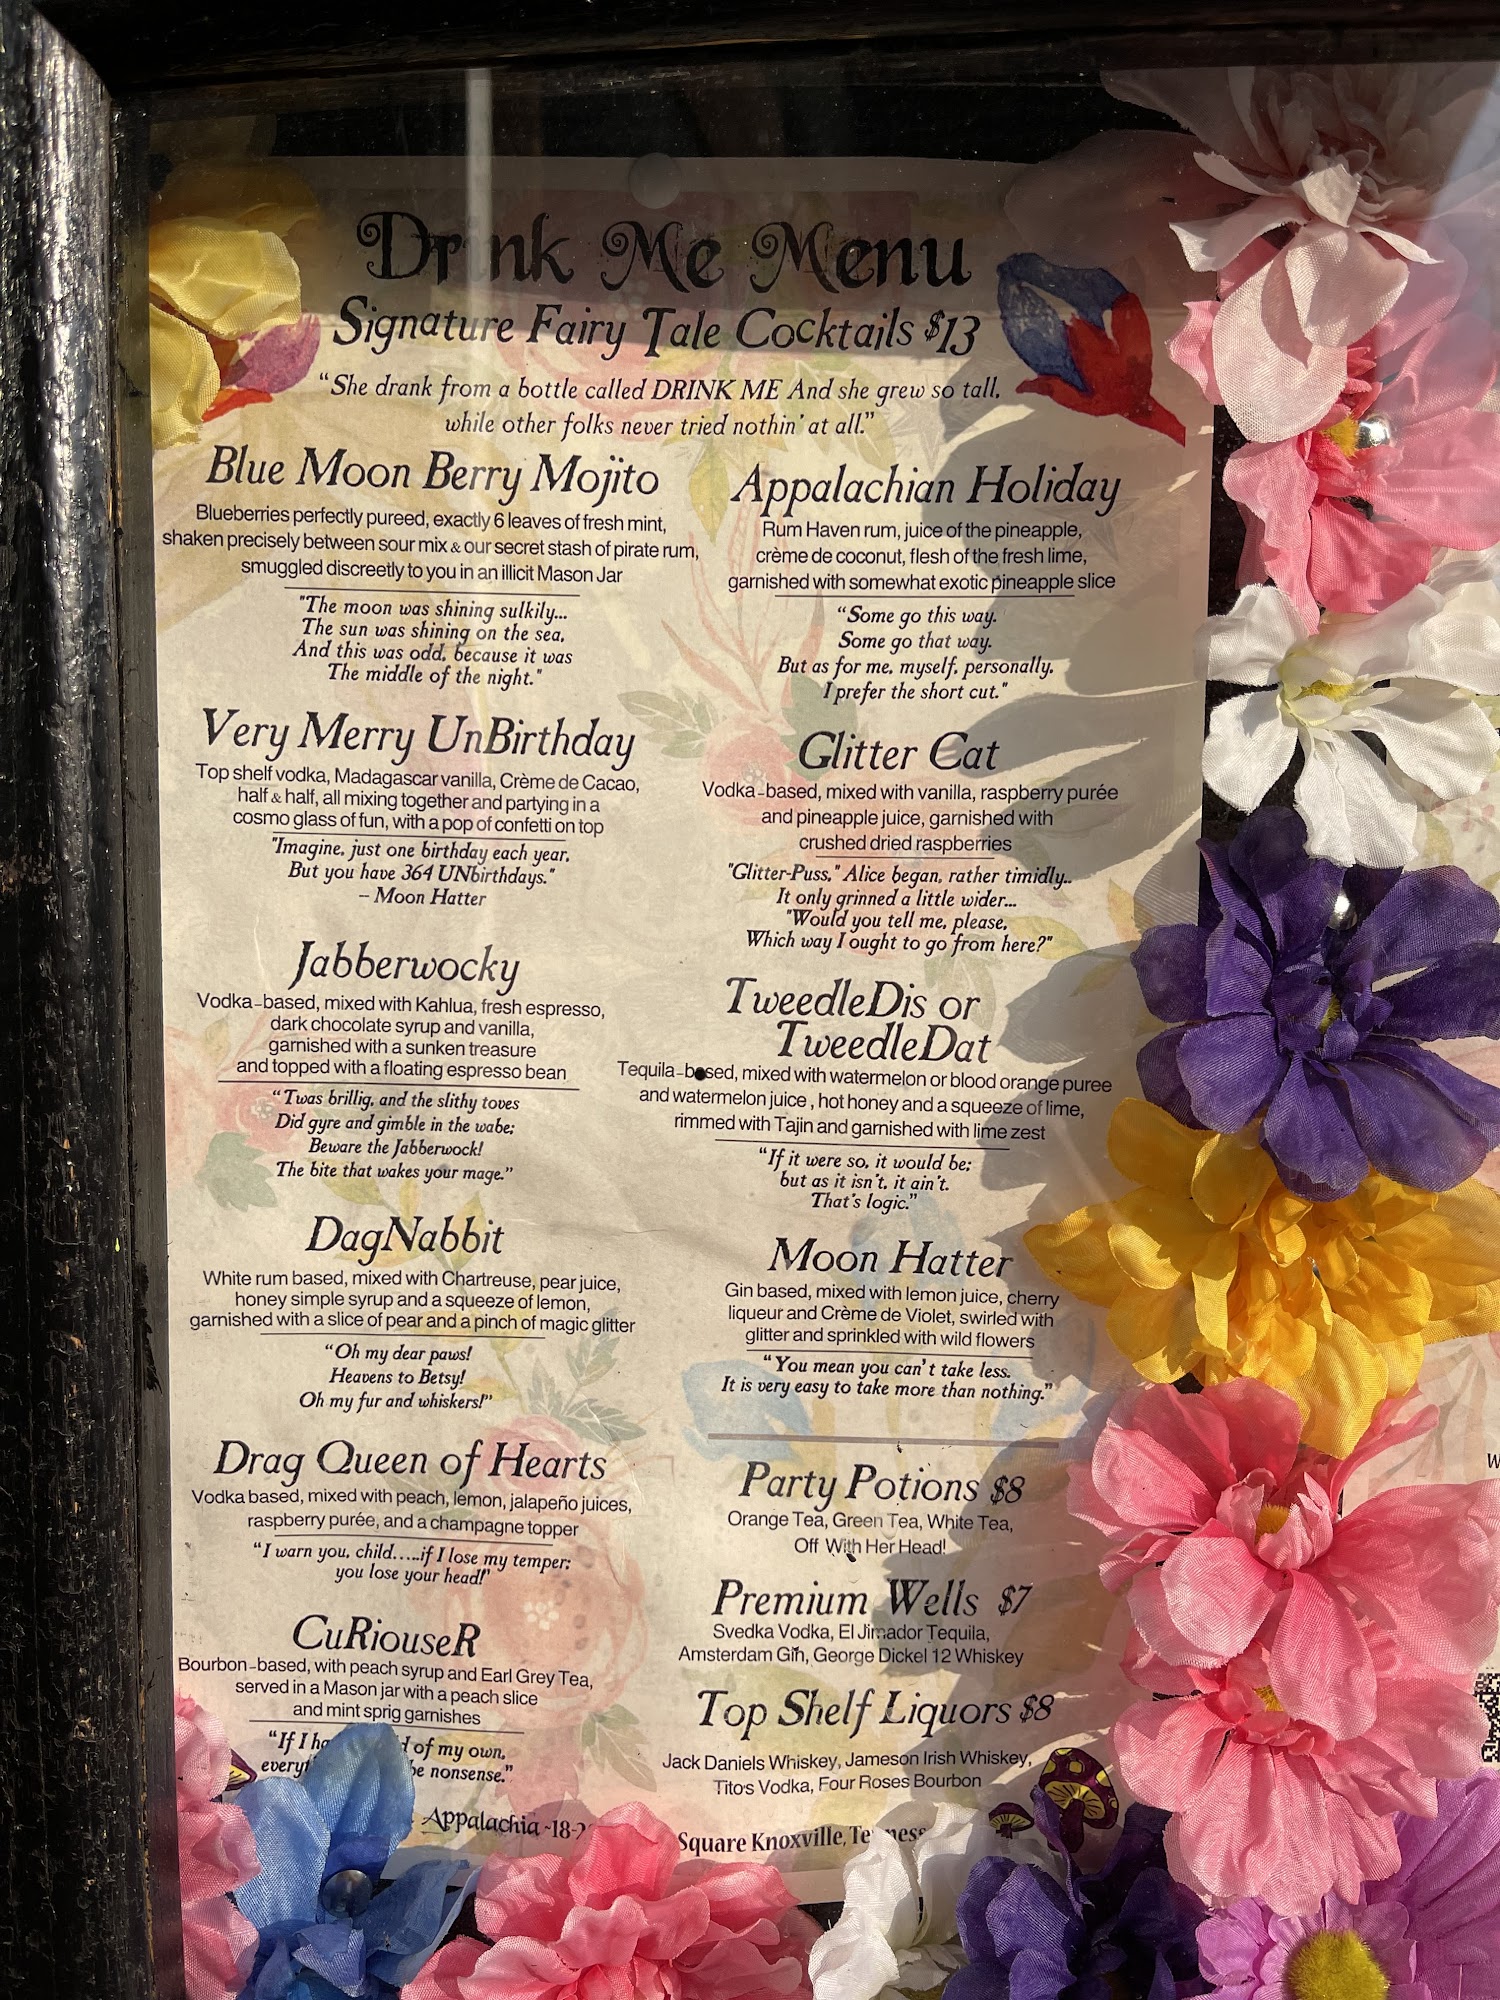 Drink Me Menu
Signature Fairy Tale Cocktails $13
“She drank from a bottle called DRINK ME And she grew so tall,
while other folks never tried nothin’ at all.”
Blue Moon Berry Mojito
Blueberries perfectly pureed, exactly 6 leaves of fresh mint,
shaken precisely between sour mix & our secret stash of pirate rum,
smuggled discreetly to you in an illicit Mason Jar
"The moon was shining sulkily...
The sun was shining on the sea,
And this was odd, because it was
The middle of the night."
Very Merry UnBirthday
Top shelf vodka, Madagascar vanilla, Crème de Cacao,
half & half, all mixing together and partying in a
cosmo glass of fun, with a pop of confetti on top
"Imagine, just one birthday each year,
But you have 364 UNbirthdays."
-- Moon Hatter
Jabberwocky
Vodka-based, mixed with Kahlua, fresh espresso,
dark chocolate syrup and vanilla,
garnished with a sunken treasure
and topped with a floating espresso bean
“Twas brillig, and the slithy toves
Did gyre and gimble in the wabe;
Beware the Jabberwock!
The bite that wakes your mage.”
DagNabbit
White rum based, mixed with Chartreuse, pear juice,
honey simple syrup and a squeeze of lemon,
garnished with a slice of pear and a pinch of magic glitter
“Oh my dear paws!
Heavens to Betsy!
Oh my fur and whiskers!”
Drag Queen of Hearts
Vodka based, mixed with peach, lemon, jalapeño juices,
raspberry purée, and a champagne topper
“I warn you, child.....if I lose my temper;
you lose your head!”
CuRiouseR
Bourbon-based, with peach syrup and Earl Grey Tea,
served in a Mason jar with a peach slice
and mint sprig garnishes
“If I of my own,
nonsense.”
Appalachian Holiday
Rum Haven rum, juice of the pineapple,
crème de coconut, flesh of the fresh lime,
garnished with somewhat exotic pineapple slice
“Some go this way.
Some go that way.
But as for me, myself, personally,
I prefer the short cut."
Glitter Cat
Vodka-based, mixed with vanilla, raspberry purée
and pineapple juice, garnished with
crushed dried raspberries
"Glitter-Puss," Alice began, rather timidly..
It only grinned a little wider...
"Would you tell me, please,
Which way I ought to go from here?"
TweedleDis or
TweedleDat
Tequila-based, mixed with watermelon or blood orange puree
and watermelon juice , hot honey and a squeeze of lime,
rimmed with Tajin and garnished with lime zest
“If it were so, it would be;
but as it isn't, it ain't.
That's logic.”
Moon Hatter
Gin based, mixed with lemon juice, cherry
liqueur and Crème de Violet, swirled with
glitter and sprinkled with wild flowers
“You mean you can’t take less.
It is very easy to take more than nothing.”
Party Potions $8
Orange Tea, Green Tea, White Tea,
Off With Her Head!
Premium Wells $7
Svedka Vodka, El Jimador Tequila,
Amsterdam Gin, George Dickel 12 Whiskey
Top Shelf Liquors $8
Jack Daniels Whiskey, Jameson Irish Whiskey,
Tito's Vodka, Four Roses Bourbon
Appalachia ~18- Square Knoxville,